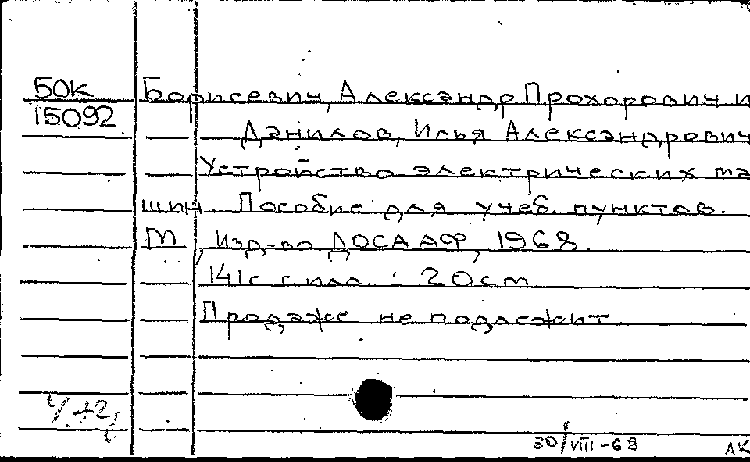 БОК
15092
Борисевич, Александр Прохорович и
Данилов, Илья Александрович
Устройство электрических ма
шин. Пособие для учеб. пунктов.
М, Изд-во ДОСААФ, 1968.
141с с илл. ; 20 см
Продаже не подлежит
30/VIII-68 АК